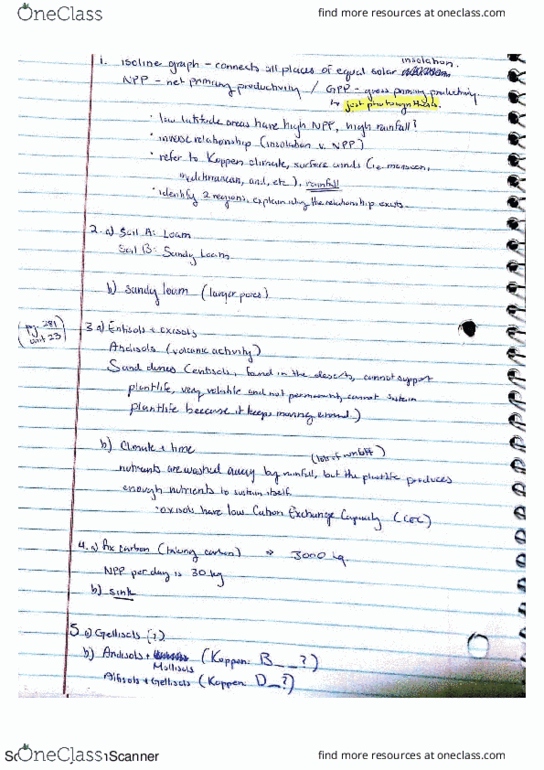 OneClass
find more resources at oneclass.com
insolation.
1. isoline graph - connects all places of equal solar
NPP - net primary productivity / GPP - gross primary productivity.
↳ just photosynthesis.
• low latitude areas have high NPP, high rainfall?
• inverse relationship (insolation v. NPP)
• refer to Koppen climate, surface winds (ie. monsoon,
mediterranean, and, etc), rainfall
• identify 2 regions, explain why the relationship exists.
2. a) Soil A: Loam
Soil B: Sandy Loam
b) sandy loam (larger pores)
(pg. 281
unit 23)
3 a) Entisols + oxisols
Andisols (volcanic activity)
Sand dunes (entisols, found in the deserts, cannot support
plantlife, very volatile and not permanent, cannot sustain
plantlife because it keeps moving around.)
b) Climate + time
(lots of runoff)
nutrients are washed away by rainfall, but the plantlife produces
enough nutrients to sustain itself.
• oxisols have low Cation Exchange Capacity (CEC)
4. a) fix carbon (taking carbon) ⇒ 3000 kg.
NPP per day is 30 kg
b) sink
5 a) Gellisols (?)
b) Andisols + (Koppen B__?)
Mollisols
Alfisols + Gellisols (Koppen D_?)
OneClass
Scanner
find more resources at oneclass.com